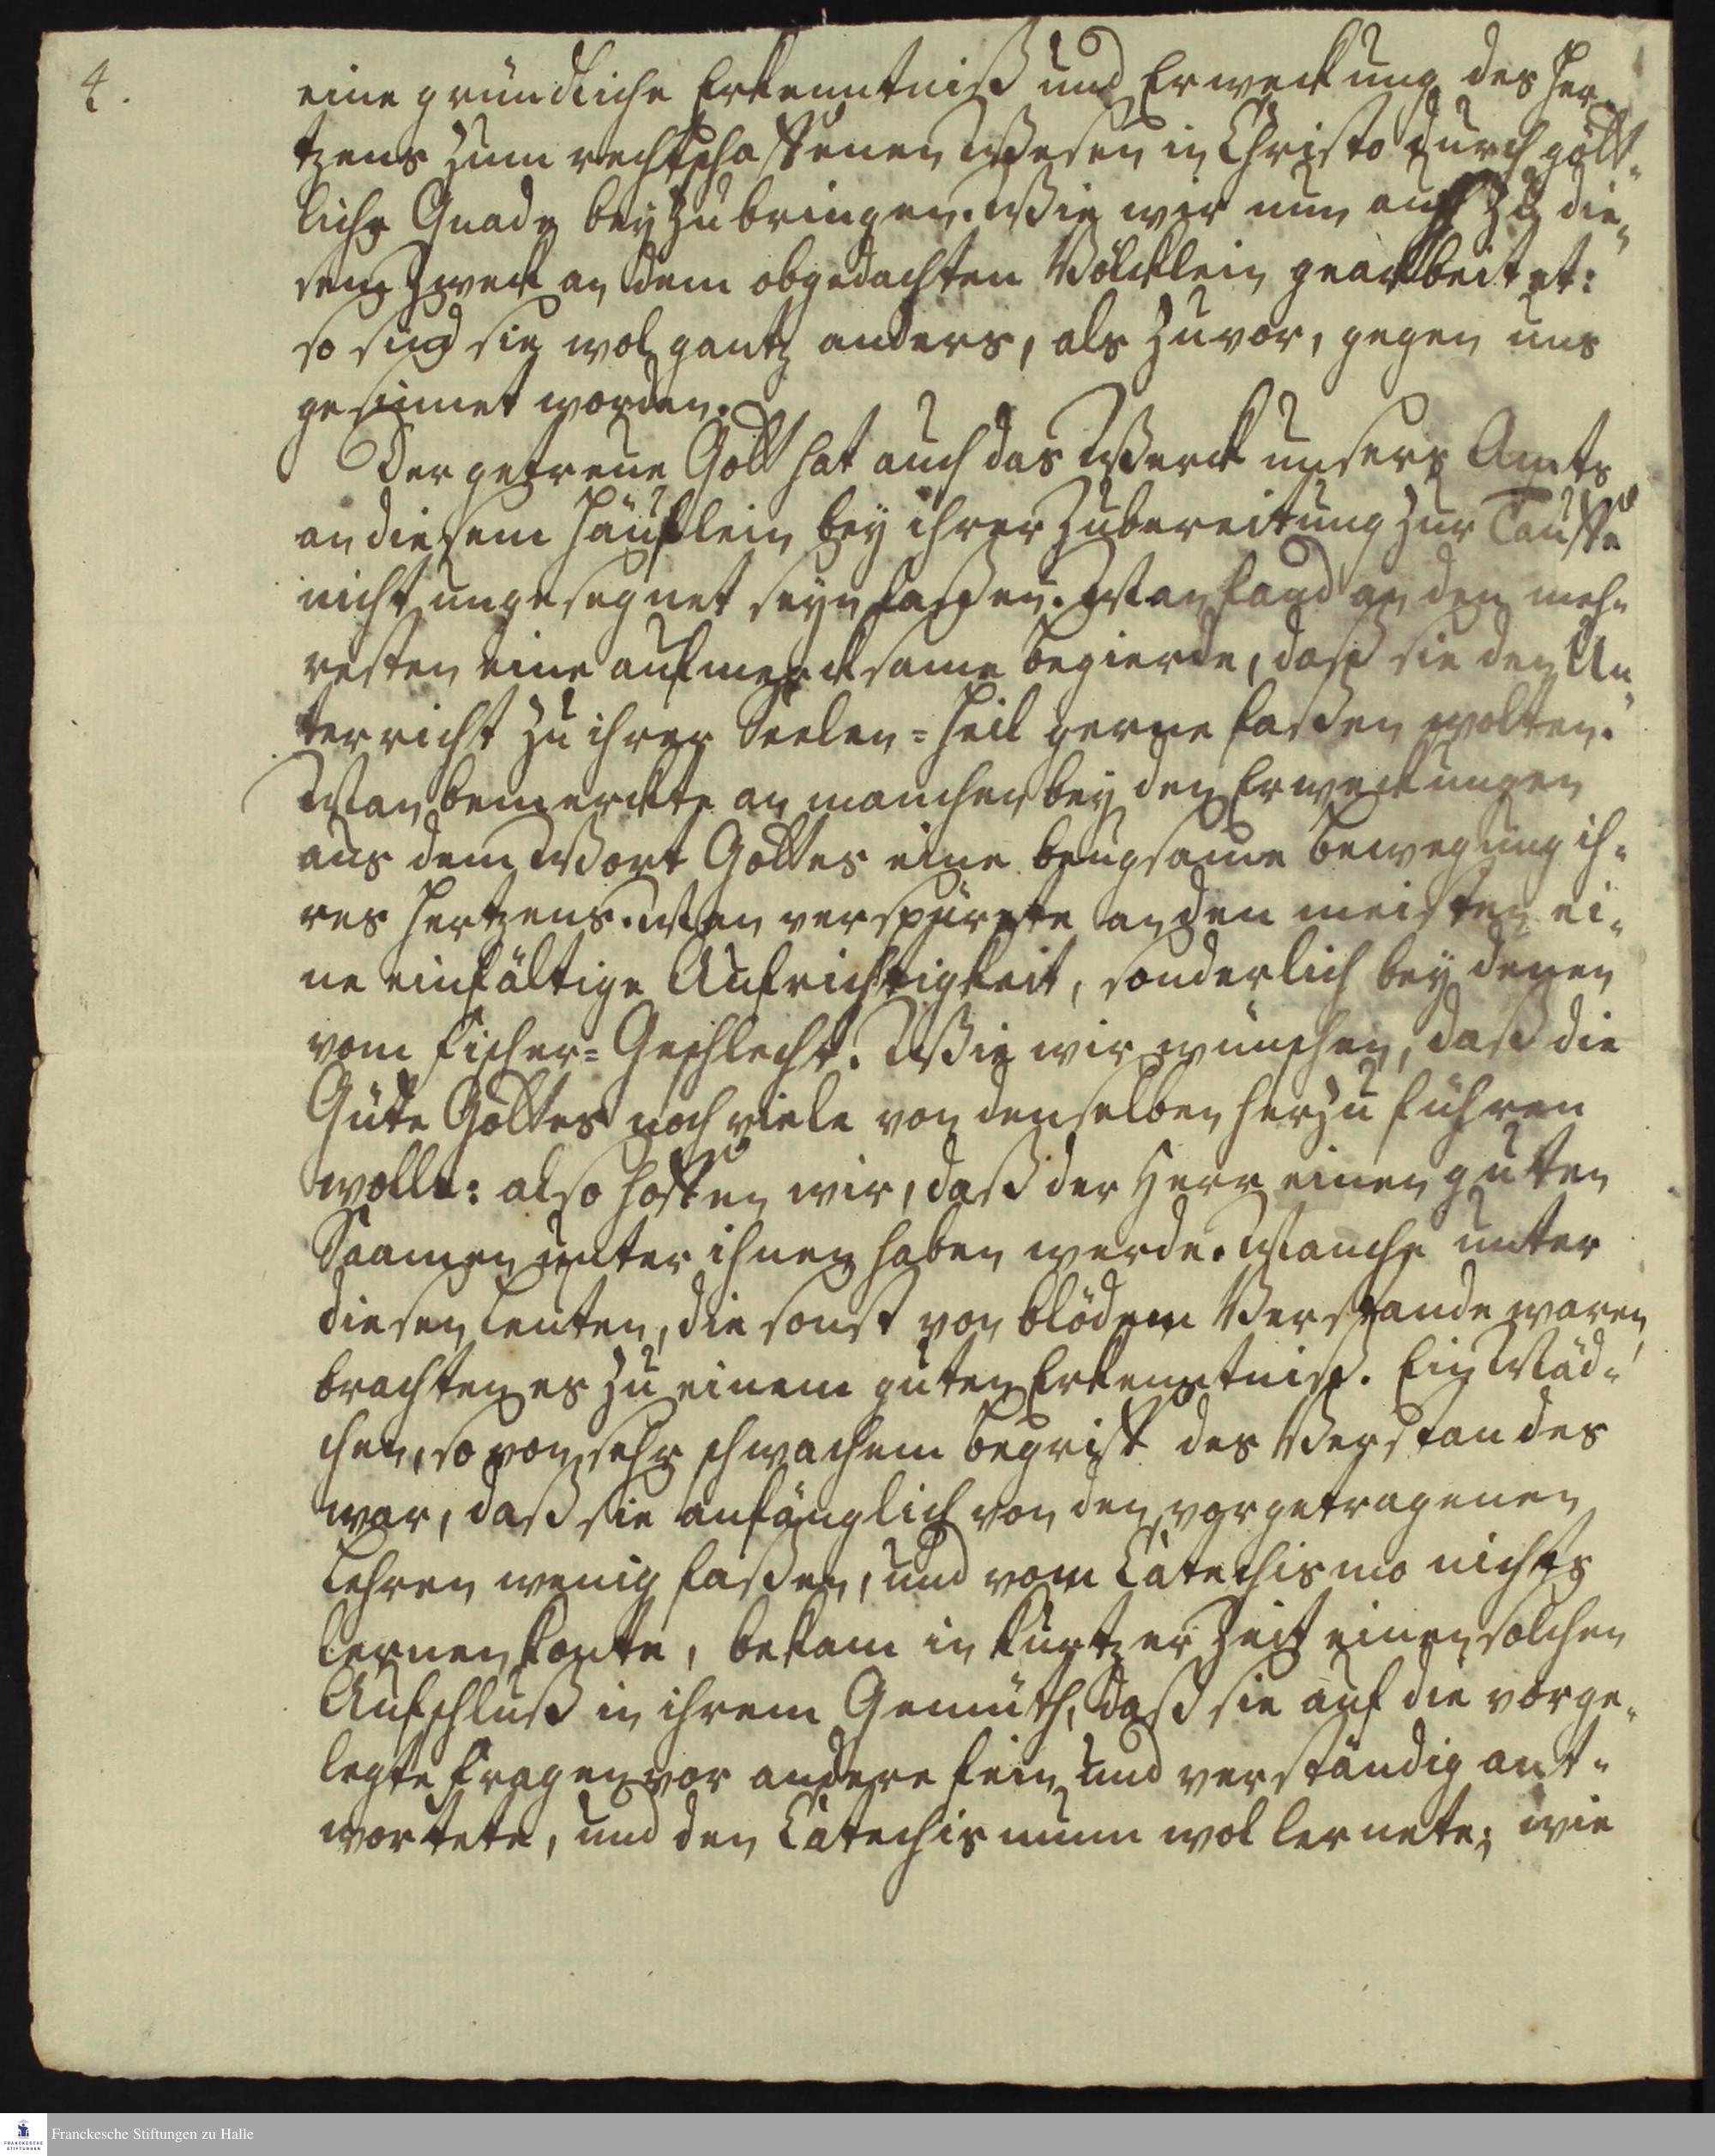 4.
eine gründliche Erkenntniß und Erweckung des Her-
tzens zum rechtschaffenen Wesen in Christo durch gött-
liche Gnade beyzubringen. Wie wir nun auch zu die-
sem Zweck an dem obgedachten Völcklein gearbeitet:
so sind sie wol gantz anders, als zuvor, gegen uns
gesinnet worden.
Der getreue Gott hat auch das Werck unsers Amts
an diesem Häuflein bey ihrer Zubereitung zur Tauffe
nicht ungesegnet seyn laßen. Man fand an den meh-
resten eine aufmercksame Begierde, daß sie den Un-
terricht zu ihrer Seelen-Heil gerne faßen wolten.
Man bemerckte an manchen bey den Erweckungen
aus dem Wort Gottes eine beugsame Bewegung ih-
res Hertzens. Man verspürete an den meisten ei-
ne einfältige Aufrichtigkeit, sonderlich bey denen
vom Fischer-Geschlecht. Wie wir wünschen, daß die
Güte Gottes noch viele von denselben herzu führen
wolle: also hoffen wir, daß der Herr einen guten
Saamen unter ihnen haben werde. Manche unter
diesen Leuten, die sonst von blödem Verstande waren,
brachten es zu einem guten Erkenntniß. Ein Mäd-
chen, so von sehr schwachem Begriff des Verstandes
war, daß sie anfänglich von den vorgetragenen
Lehren wenig faßen, und vom Catechismo nichts
lernen konte, bekam in kurtzer Zeit einen solchen
Aufschluß in ihrem Gemüth, daß sie auf die vorge-
legte Fragen vor andere fein und verständig ant-
wortete, und den Catechismum wol lernete; wie
Franckesche Stiftungen zu Halle